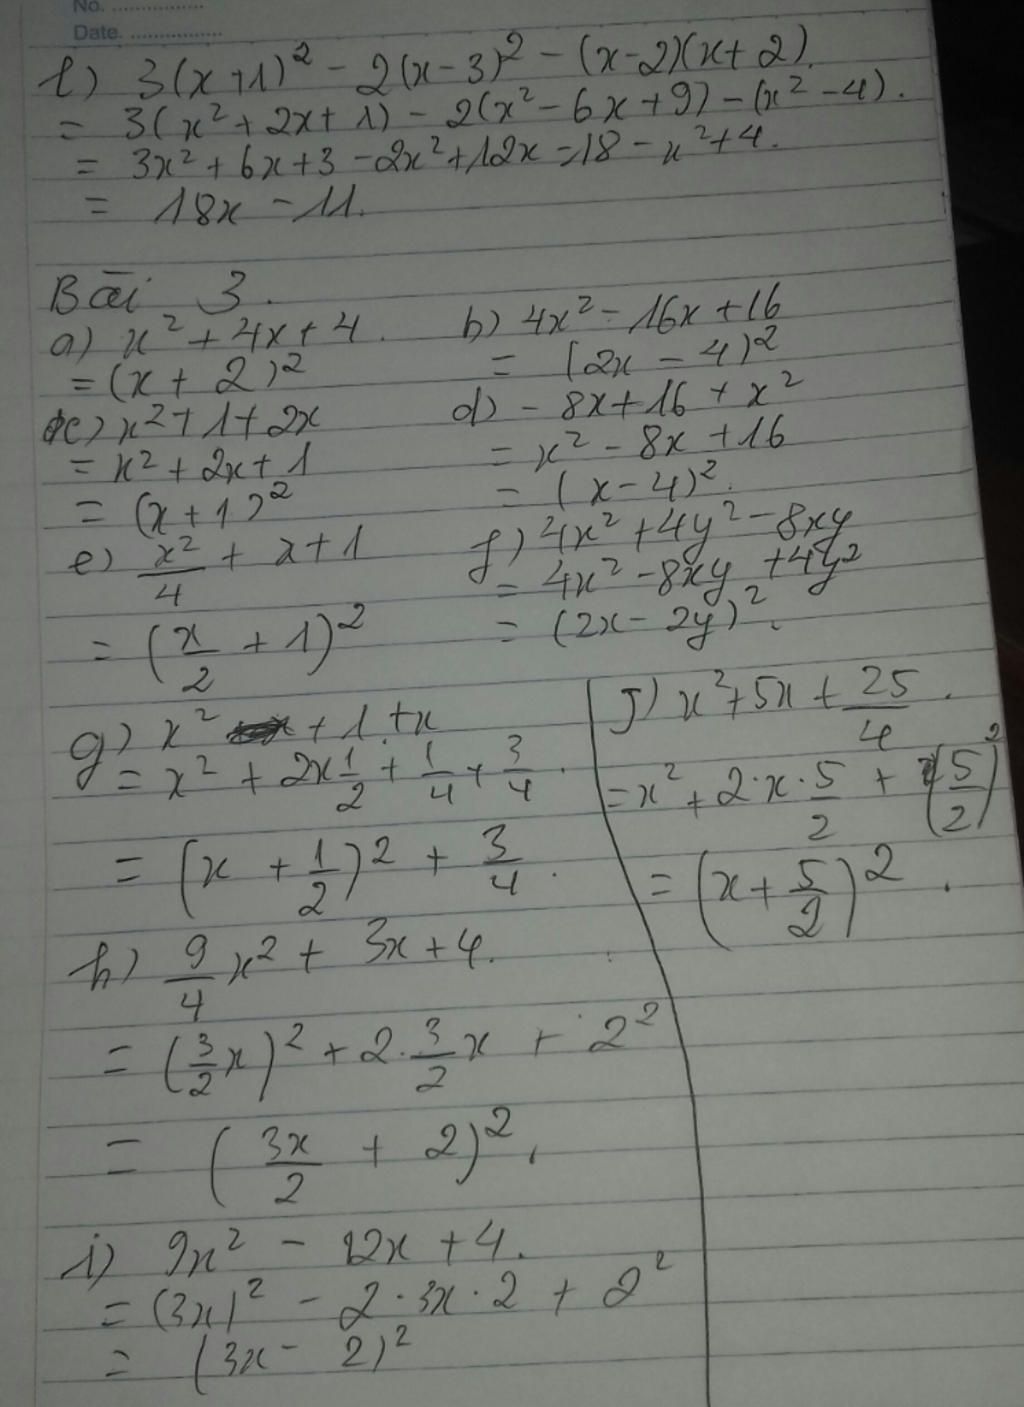 No. ................
Date. ................
l) 3(x+1)² - 2(x-3)² - (x-2)(x+2).
= 3(x² + 2x + 1) - 2(x² - 6x + 9) - (x² - 4).
= 3x² + 6x + 3 - 2x² + 12x = 18 - x² + 4.
= 18x - 11.
Bài 3.
a) x² + 4x + 4.
= (x + 2)²
b) 4x² - 16x + 16
= (2x - 4)²
c) x² + 1 + 2x
= x² + 2x + 1
= (x + 1)²
d) - 8x + 16 + x²
= x² - 8x + 16
= (x - 4)².
e) x²/4 + x + 1
= (x/2 + 1)²
f) 4x² + 4y² - 8xy
= 4x² - 8xy + 4y²
= (2x - 2y)².
g) x² + 1 + x
= x² + 2x 1/2 + 1/4 + 3/4.
= (x + 1/2)² + 3/4.
h) 9/4 x² + 3x + 4.
= (3/2 x)² + 2 . 3/2 x + 2²
= (3x/2 + 2)².
i) 9x² - 12x + 4.
= (3x)² - 2 . 3x . 2 + 2²
= (3x - 2)²
J) x² + 5x + 25/4.
= x² + 2 . x . 5/2 + (5/2)²
= (x + 5/2)².